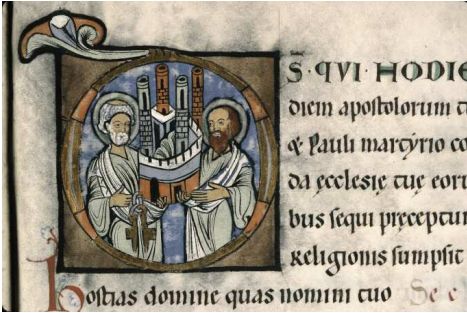 S · QVI · HODIE
diem apostolorum t
& Pauli martyrio co
da ęcclesię tuę eoru
bus sequi pręceptum
Religionis sumpsit
hostias domine quas nomini tuo Se c